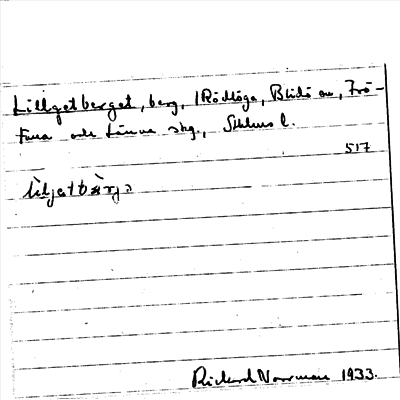 Lillgetberget, berg, i Rödlöga, Blidö sn, Frö-
tuna och Länna skg., Sthlms l.
517
Richard Norrman 1933.